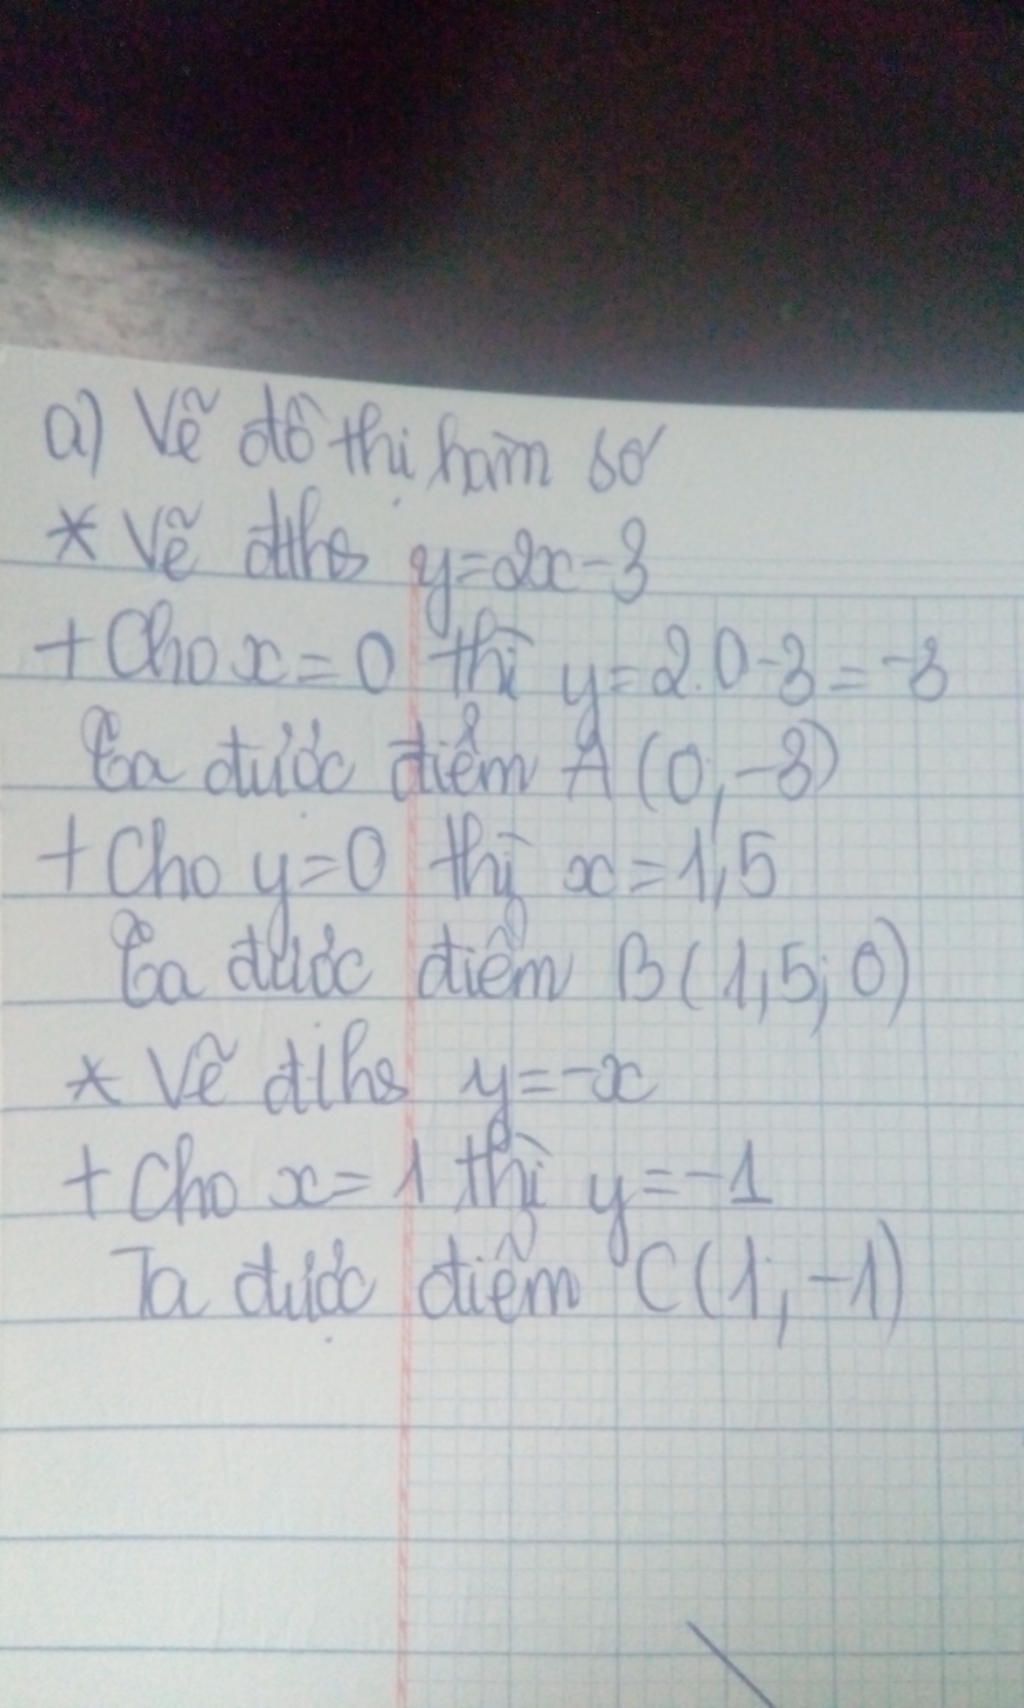 a) Vẽ đồ thị hàm số
* Vẽ đths y=2x-3
+ Cho x=0 thì y=2.0-3=-3
Ta được điểm A (0;-3)
+ Cho y=0 thì x=1,5
Ta được điểm B(1,5;0)
* Vẽ đths y=-x
+ Cho x=1 thì y=-1
Ta được điểm C(1;-1)